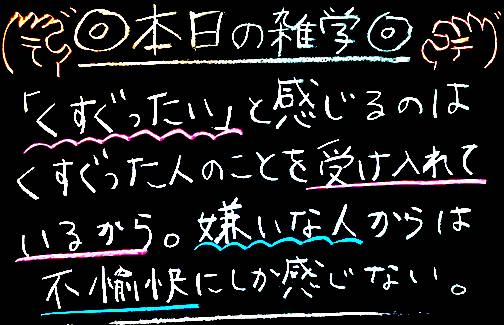 ◎本日の雑学◎
「くすぐったい」と感じるのは
くすぐった人のことを受け入れて
いるから。嫌いな人からは
不愉快にしか感じない。